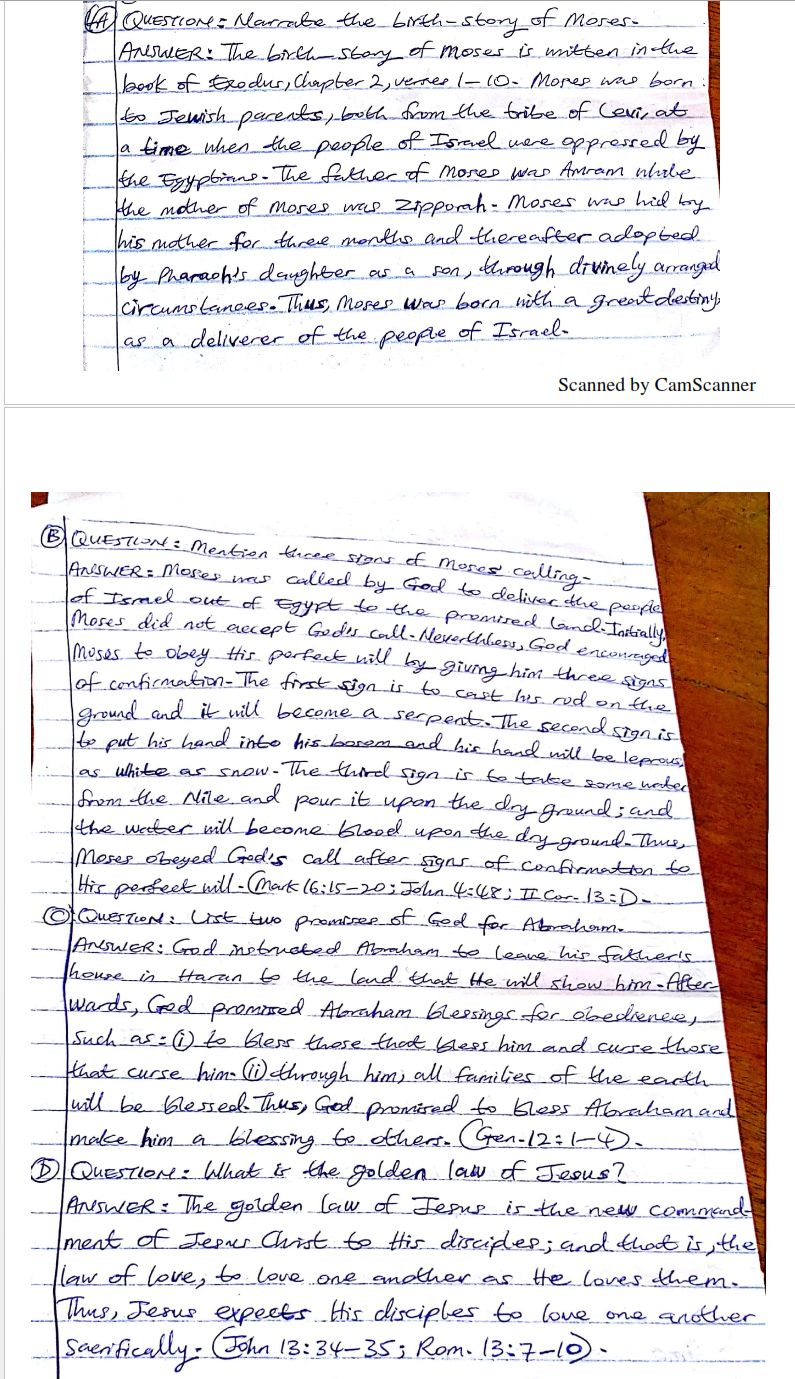 4A QUESTION: Narrate the birth-story of Moses.
ANSWER: The birth-story of Moses is written in the
book of Exodus, Chapter 2, verses 1-10. Moses was born
to Jewish parents, both from the tribe of Levi, at
a time when the people of Israel were oppressed by
the Egyptians. The father of Moses was Amram while
the mother of Moses was Zipporah. Moses was hid by
his mother for three months and thereafter adopted
by Pharaoh's daughter as a son, through divinely arranged
circumstances. Thus, Moses was born with a great destiny,
as a deliverer of the people of Israel.
Scanned by CamScanner
B QUESTION: Mention three signs of Moses' calling.
ANSWER: Moses was called by God to deliver the people
of Israel out of Egypt to the promised land. Initially,
Moses did not accept God's call. Nevertheless, God encouraged
Moses to obey His perfect will by giving him three signs
of confirmation. The first sign is to cast his rod on the
ground and it will become a serpent. The second sign is
to put his hand into his bosom and his hand will be leprous,
as white as snow. The third sign is to take some water
from the Nile and pour it upon the dry ground; and
the water will become blood upon the dry ground. Thus,
Moses obeyed God's call after signs of confirmation to
His perfect will. (Mark 16:15-20; John 4:48; II Cor. 13:1).
C QUESTION: List two promises of God for Abraham.
ANSWER: God instructed Abraham to leave his father's
house in Haran to the land that He will show him. After-
wards, God promised Abraham blessings for obedience,
such as: (i) to bless those that bless him and curse those
that curse him. (ii) through him, all families of the earth
will be blessed. Thus, God promised to bless Abraham and
make him a blessing to others. (Gen. 12:1-4).
D QUESTION: What is the golden law of Jesus?
ANSWER: The golden law of Jesus is the new command-
ment of Jesus Christ to His disciples; and that is, the
law of love, to love one another as He loves them.
Thus, Jesus expects His disciples to love one another
sacrificially. (John 13:34-35; Rom. 13:7-10).